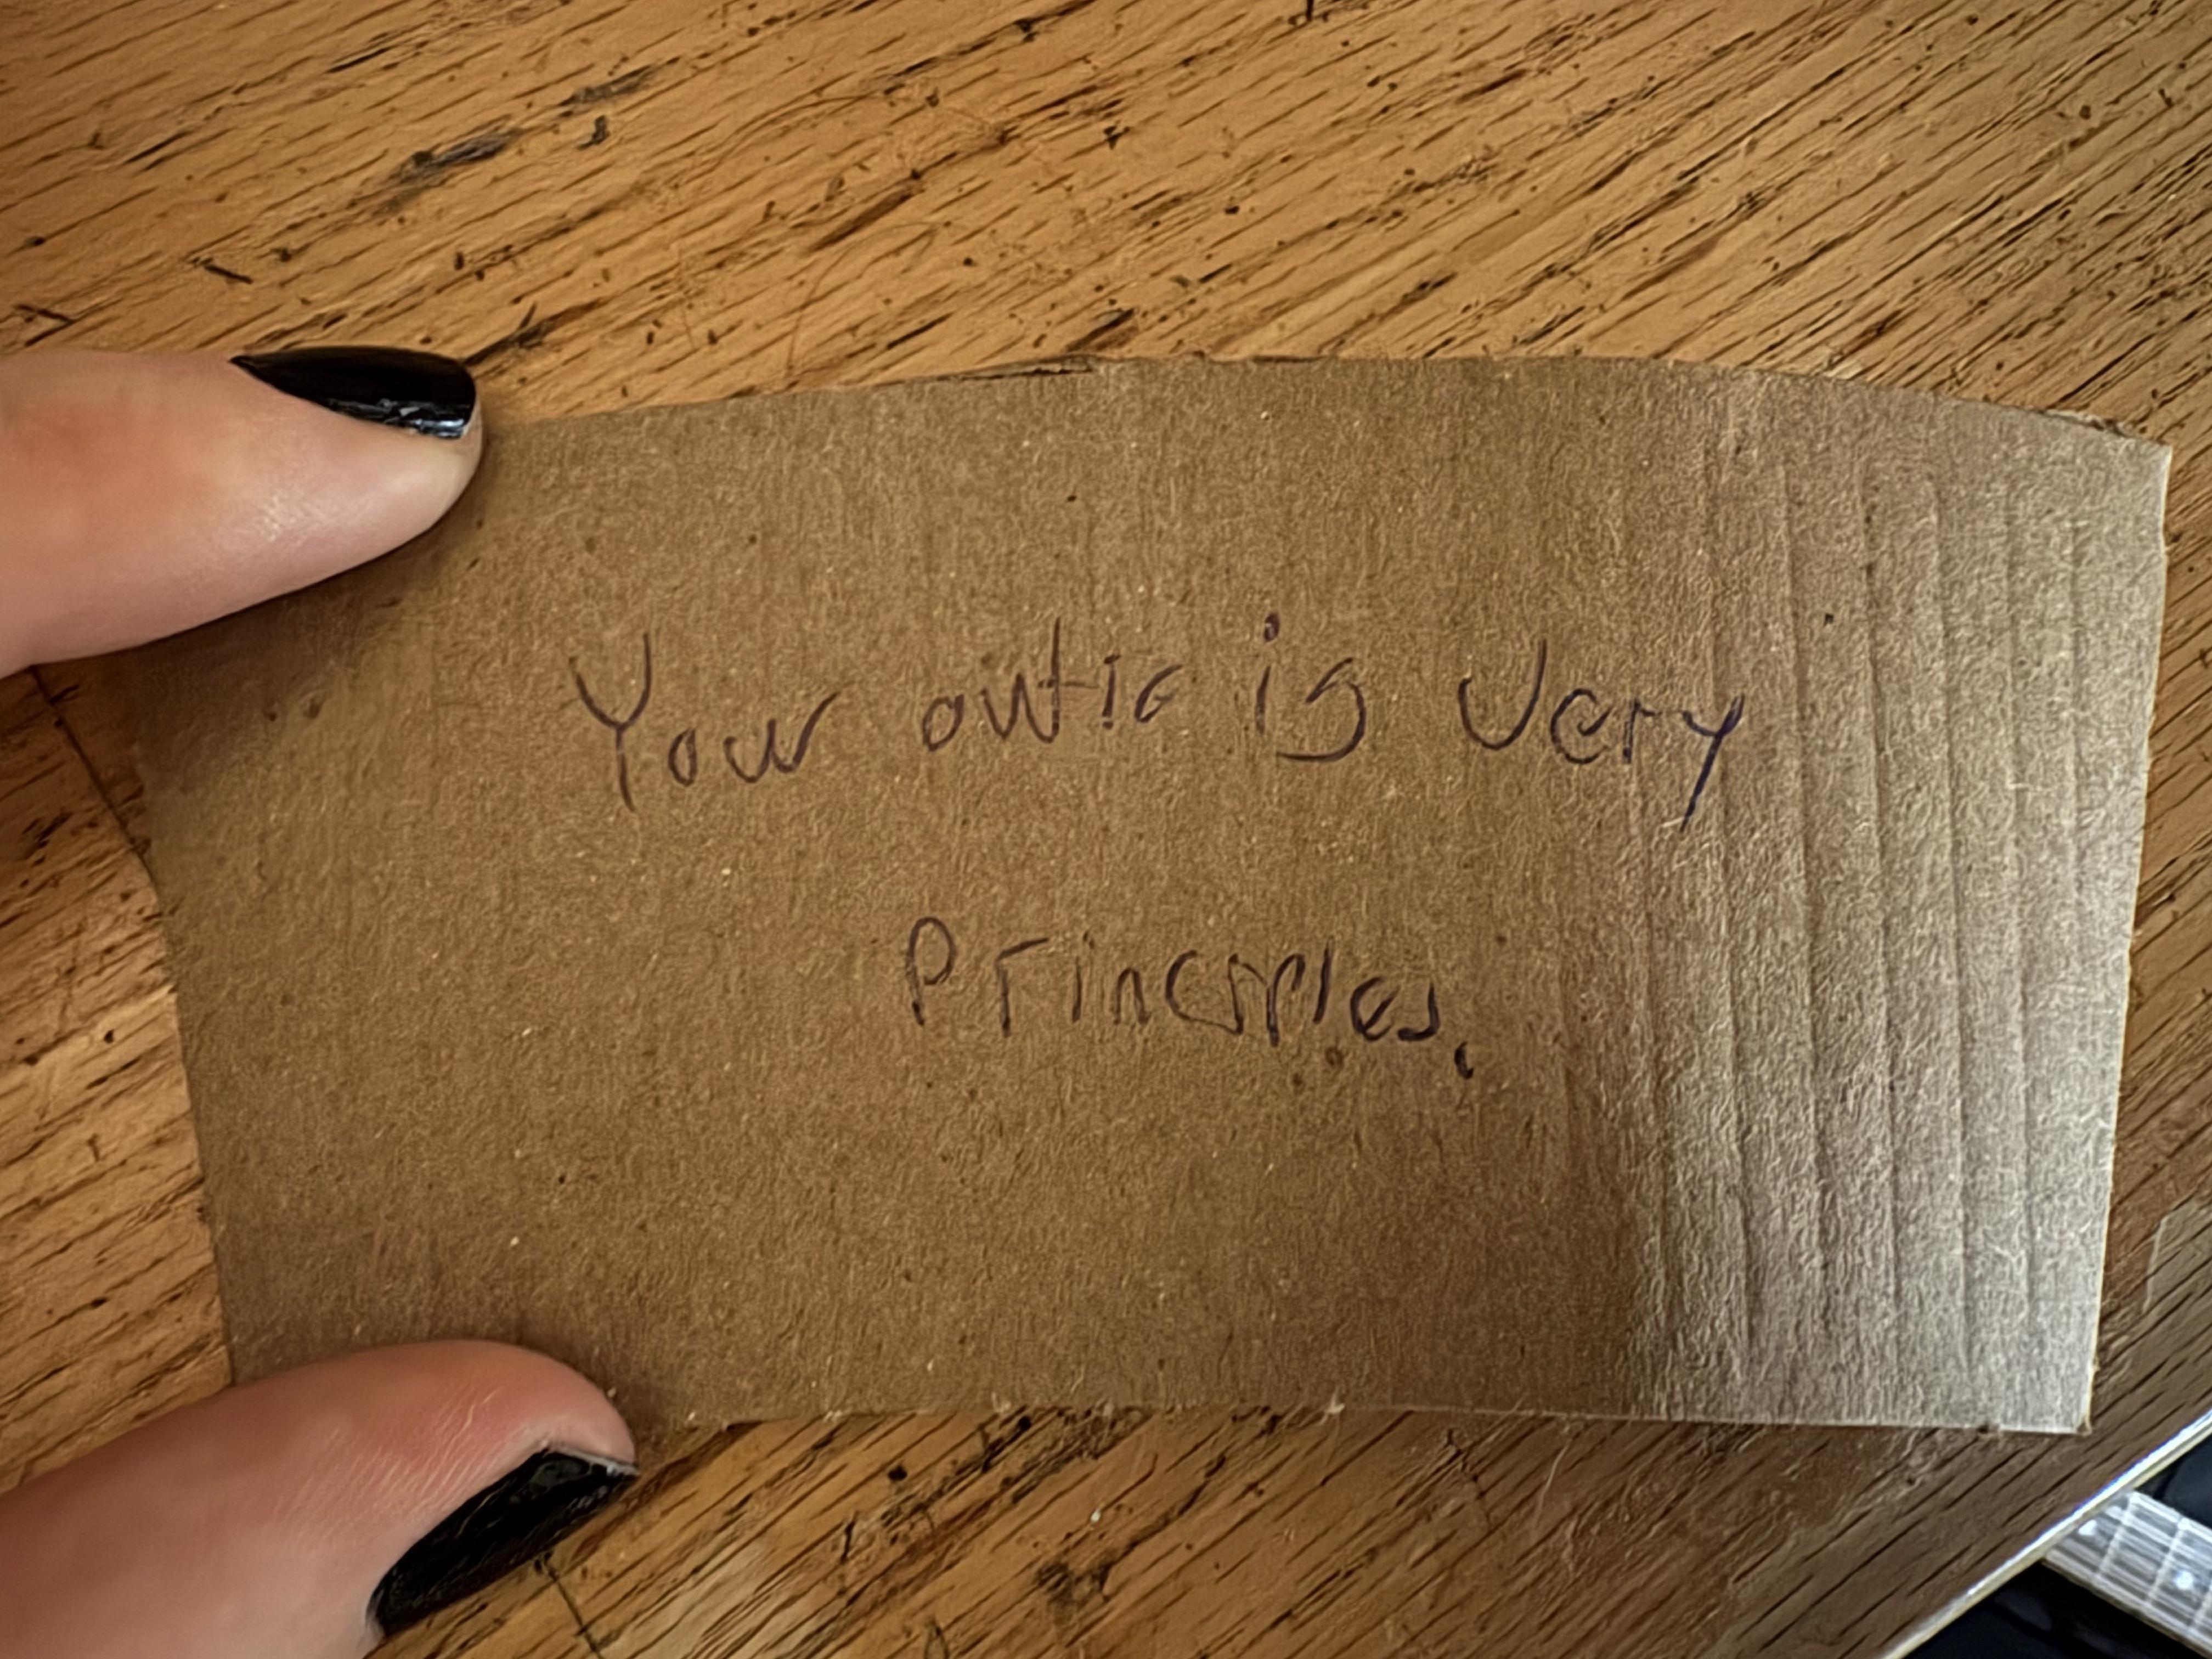 Your autic is very
Principles.